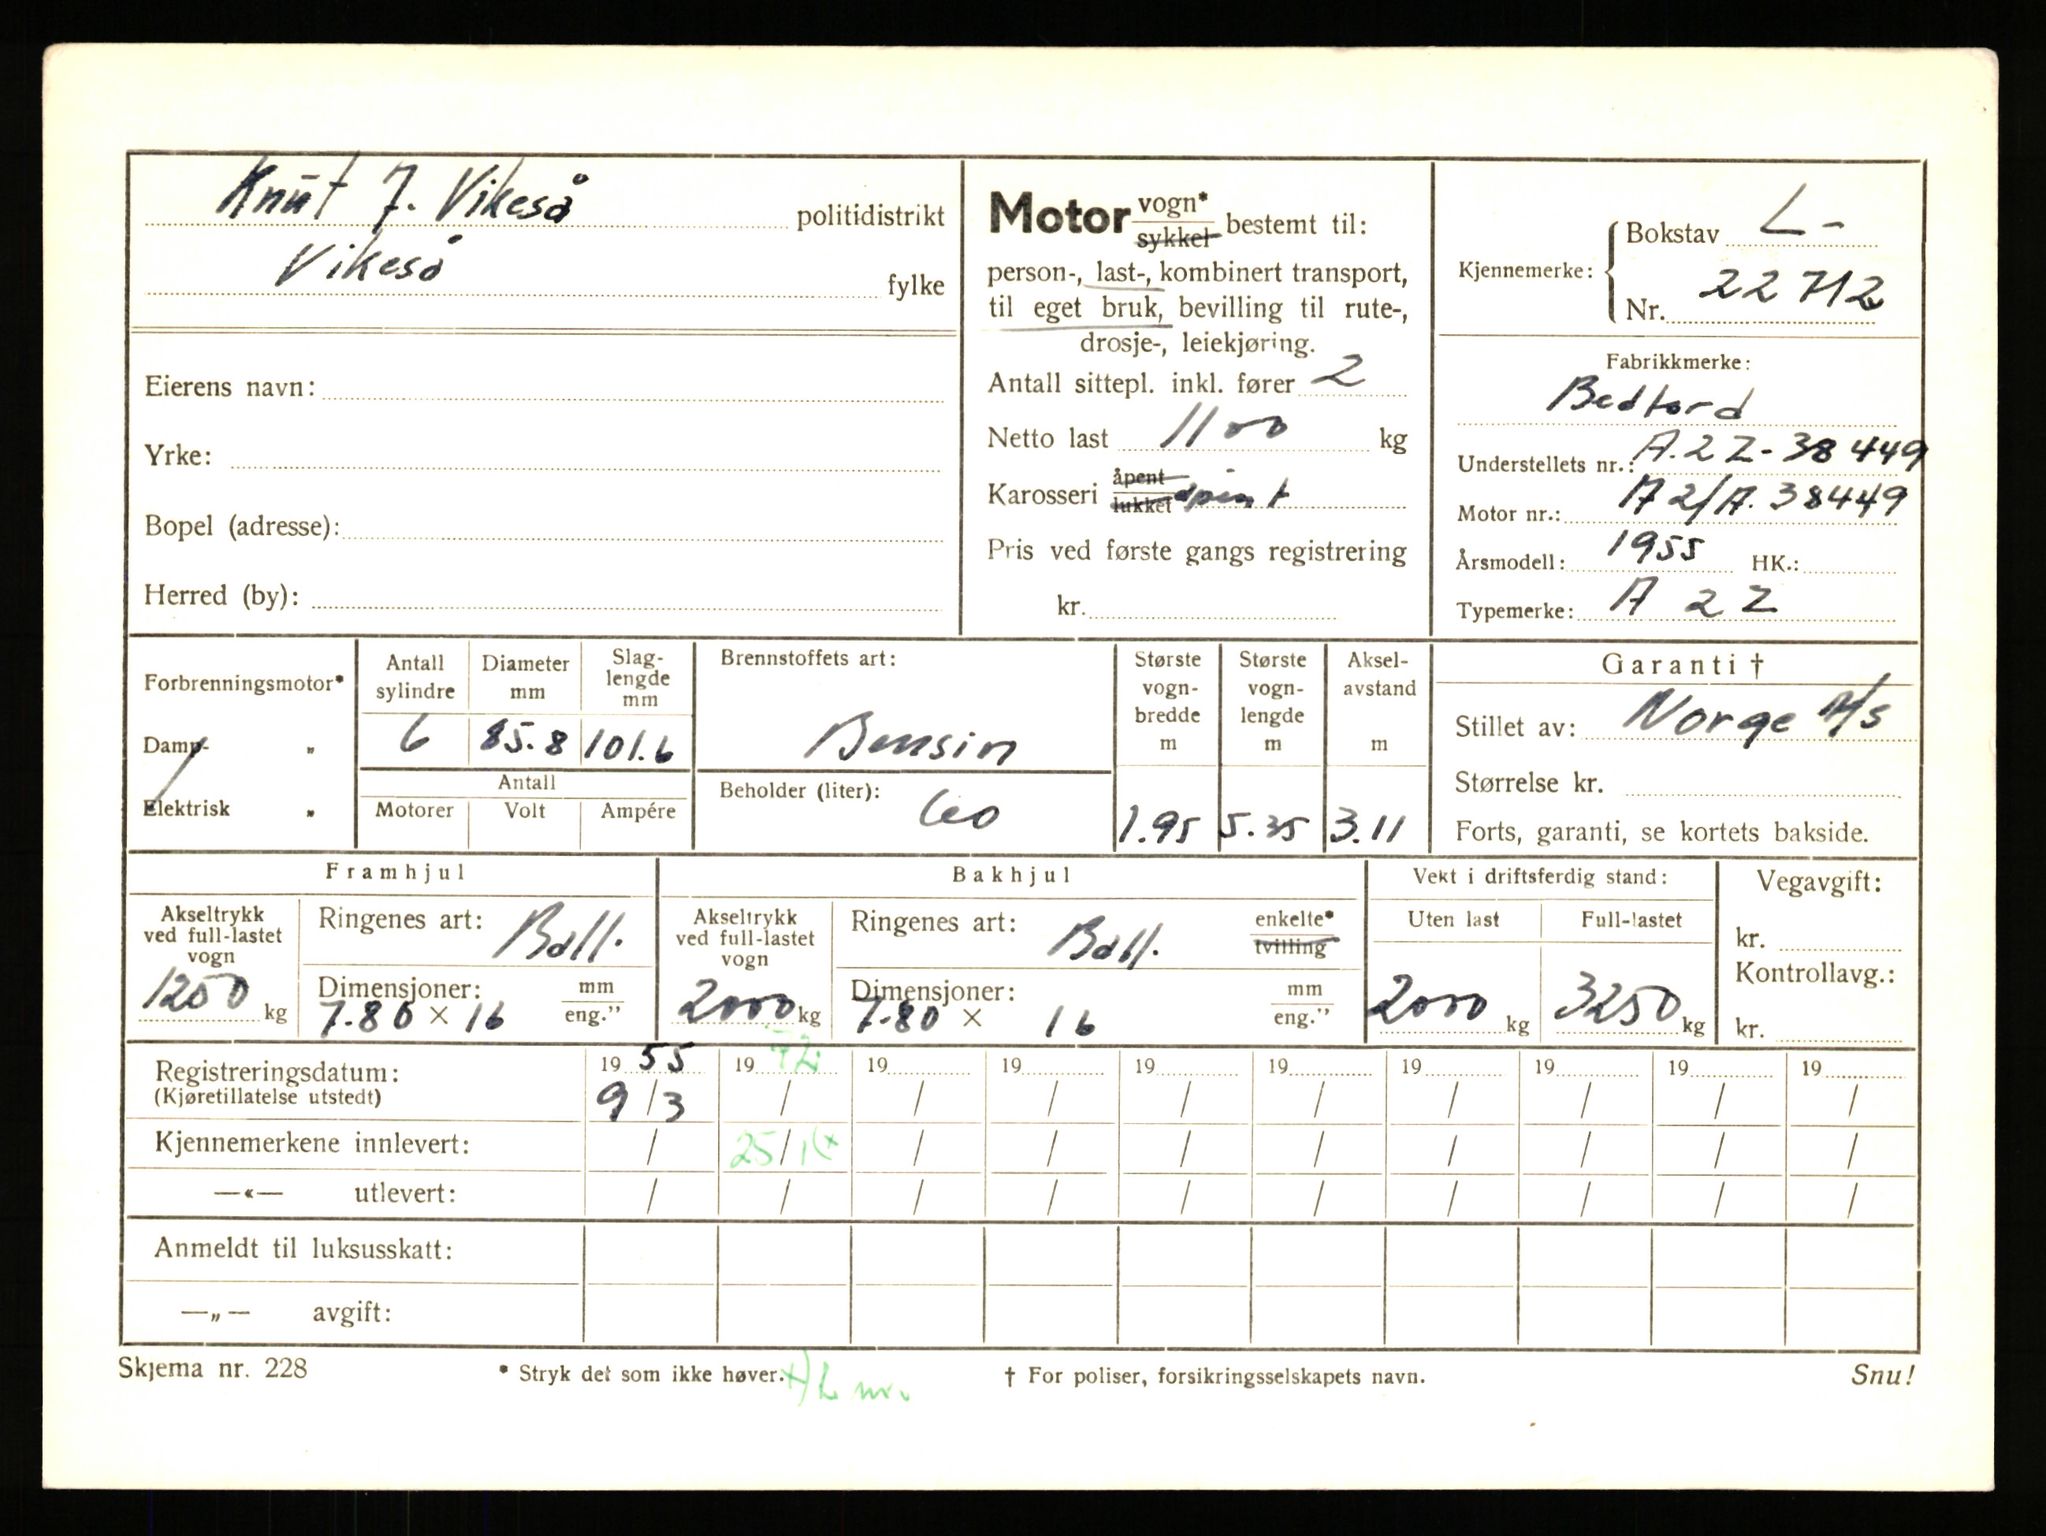 Knut J. Vikeså politidistrikt
Vikeså fylke
Eierens navn:
Yrke:
Bopel (adresse):
Herred (by):
Motor vogn* sykkel bestemt til:
person-, last-, kombinert transport,
til eget bruk, bevilling til rute-,
drosje-, leiekjøring.
Antall sittepl. inkl. fører 2
Netto last 1100 kg
Karosseri åpent lukket åpent
Pris ved første gangs registrering
kr.
Kjennemerke: Bokstav L-
Nr. 22712
Fabrikkmerke:
Bedford
Understellets nr.: A.2Z-38449
Motor nr.: A2/A.38449
Årsmodell: 1955 HK.:
Typemerke: A 2 Z
Forbrenningsmotor*
Damp- „
Elektrisk „
Antall sylindre 6
Diameter mm 85.8
Slag-lengde mm 101.6
Antall
Motorer Volt Ampére
Brennstoffets art:
Bensin
Beholder (liter): 60
Største vogn-bredde m 1.95
Største vogn-lengde m 5.35
Aksel-avstand m 3.11
Garanti †
Stillet av: Norge A/S
Størrelse kr.
Forts, garanti, se kortets bakside.
Framhjul
Akseltrykk ved full-lastet vogn 1250 kg
Ringenes art: Ball.
Dimensjoner: 7.80 × 16 mm eng."
Bakhjul
Akseltrykk ved full-lastet vogn 2000 kg
Ringenes art: Ball. enkelte* tvilling
Dimensjoner: 7.80 × 16 mm eng."
Vekt i driftsferdig stand:
Uten last 2000 kg
Full-lastet 3250 kg
Vegavgift:
kr.
Kontrollavg.:
kr.
Registreringsdatum: 19 55 19 72 19 19 19 19 19 19 19 19
(Kjøretillatelse utstedt) 9/3 / / / / / / / / /
Kjennemerkene innlevert: / 25/1 / / / / / / / /
—«— utlevert: / / / / / / / / / /
Anmeldt til luksusskatt:
—„— avgift:
Skjema nr. 228 * Stryk det som ikke høver. +) L nr. † For poliser, forsikringsselskapets navn. Snu!